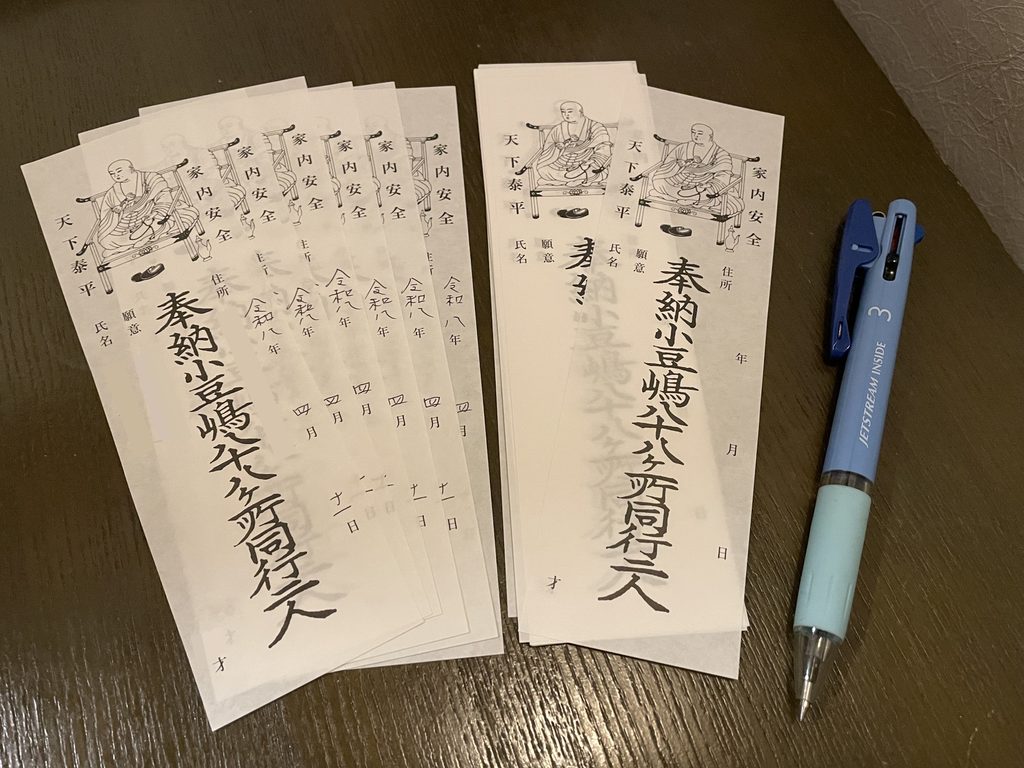 天下泰平
家内安全
氏名
願意
住所
奉納小豆嶋八十八ヶ所同行二人
才
家内安全
令和八年
四月
十一日
家内安全
令和八年
四月
家内安全
令和八年
四月
家内安全
令和八年
四月
十一日
家内安全
住所
令和八年
四月
十一日
天下泰平
氏名
願意
天下泰平
家内安全
氏名
願意
住所
奉納小豆嶋八十八ヶ所同行二人
年
月
日
才
3
JETSTREAM INSIDE